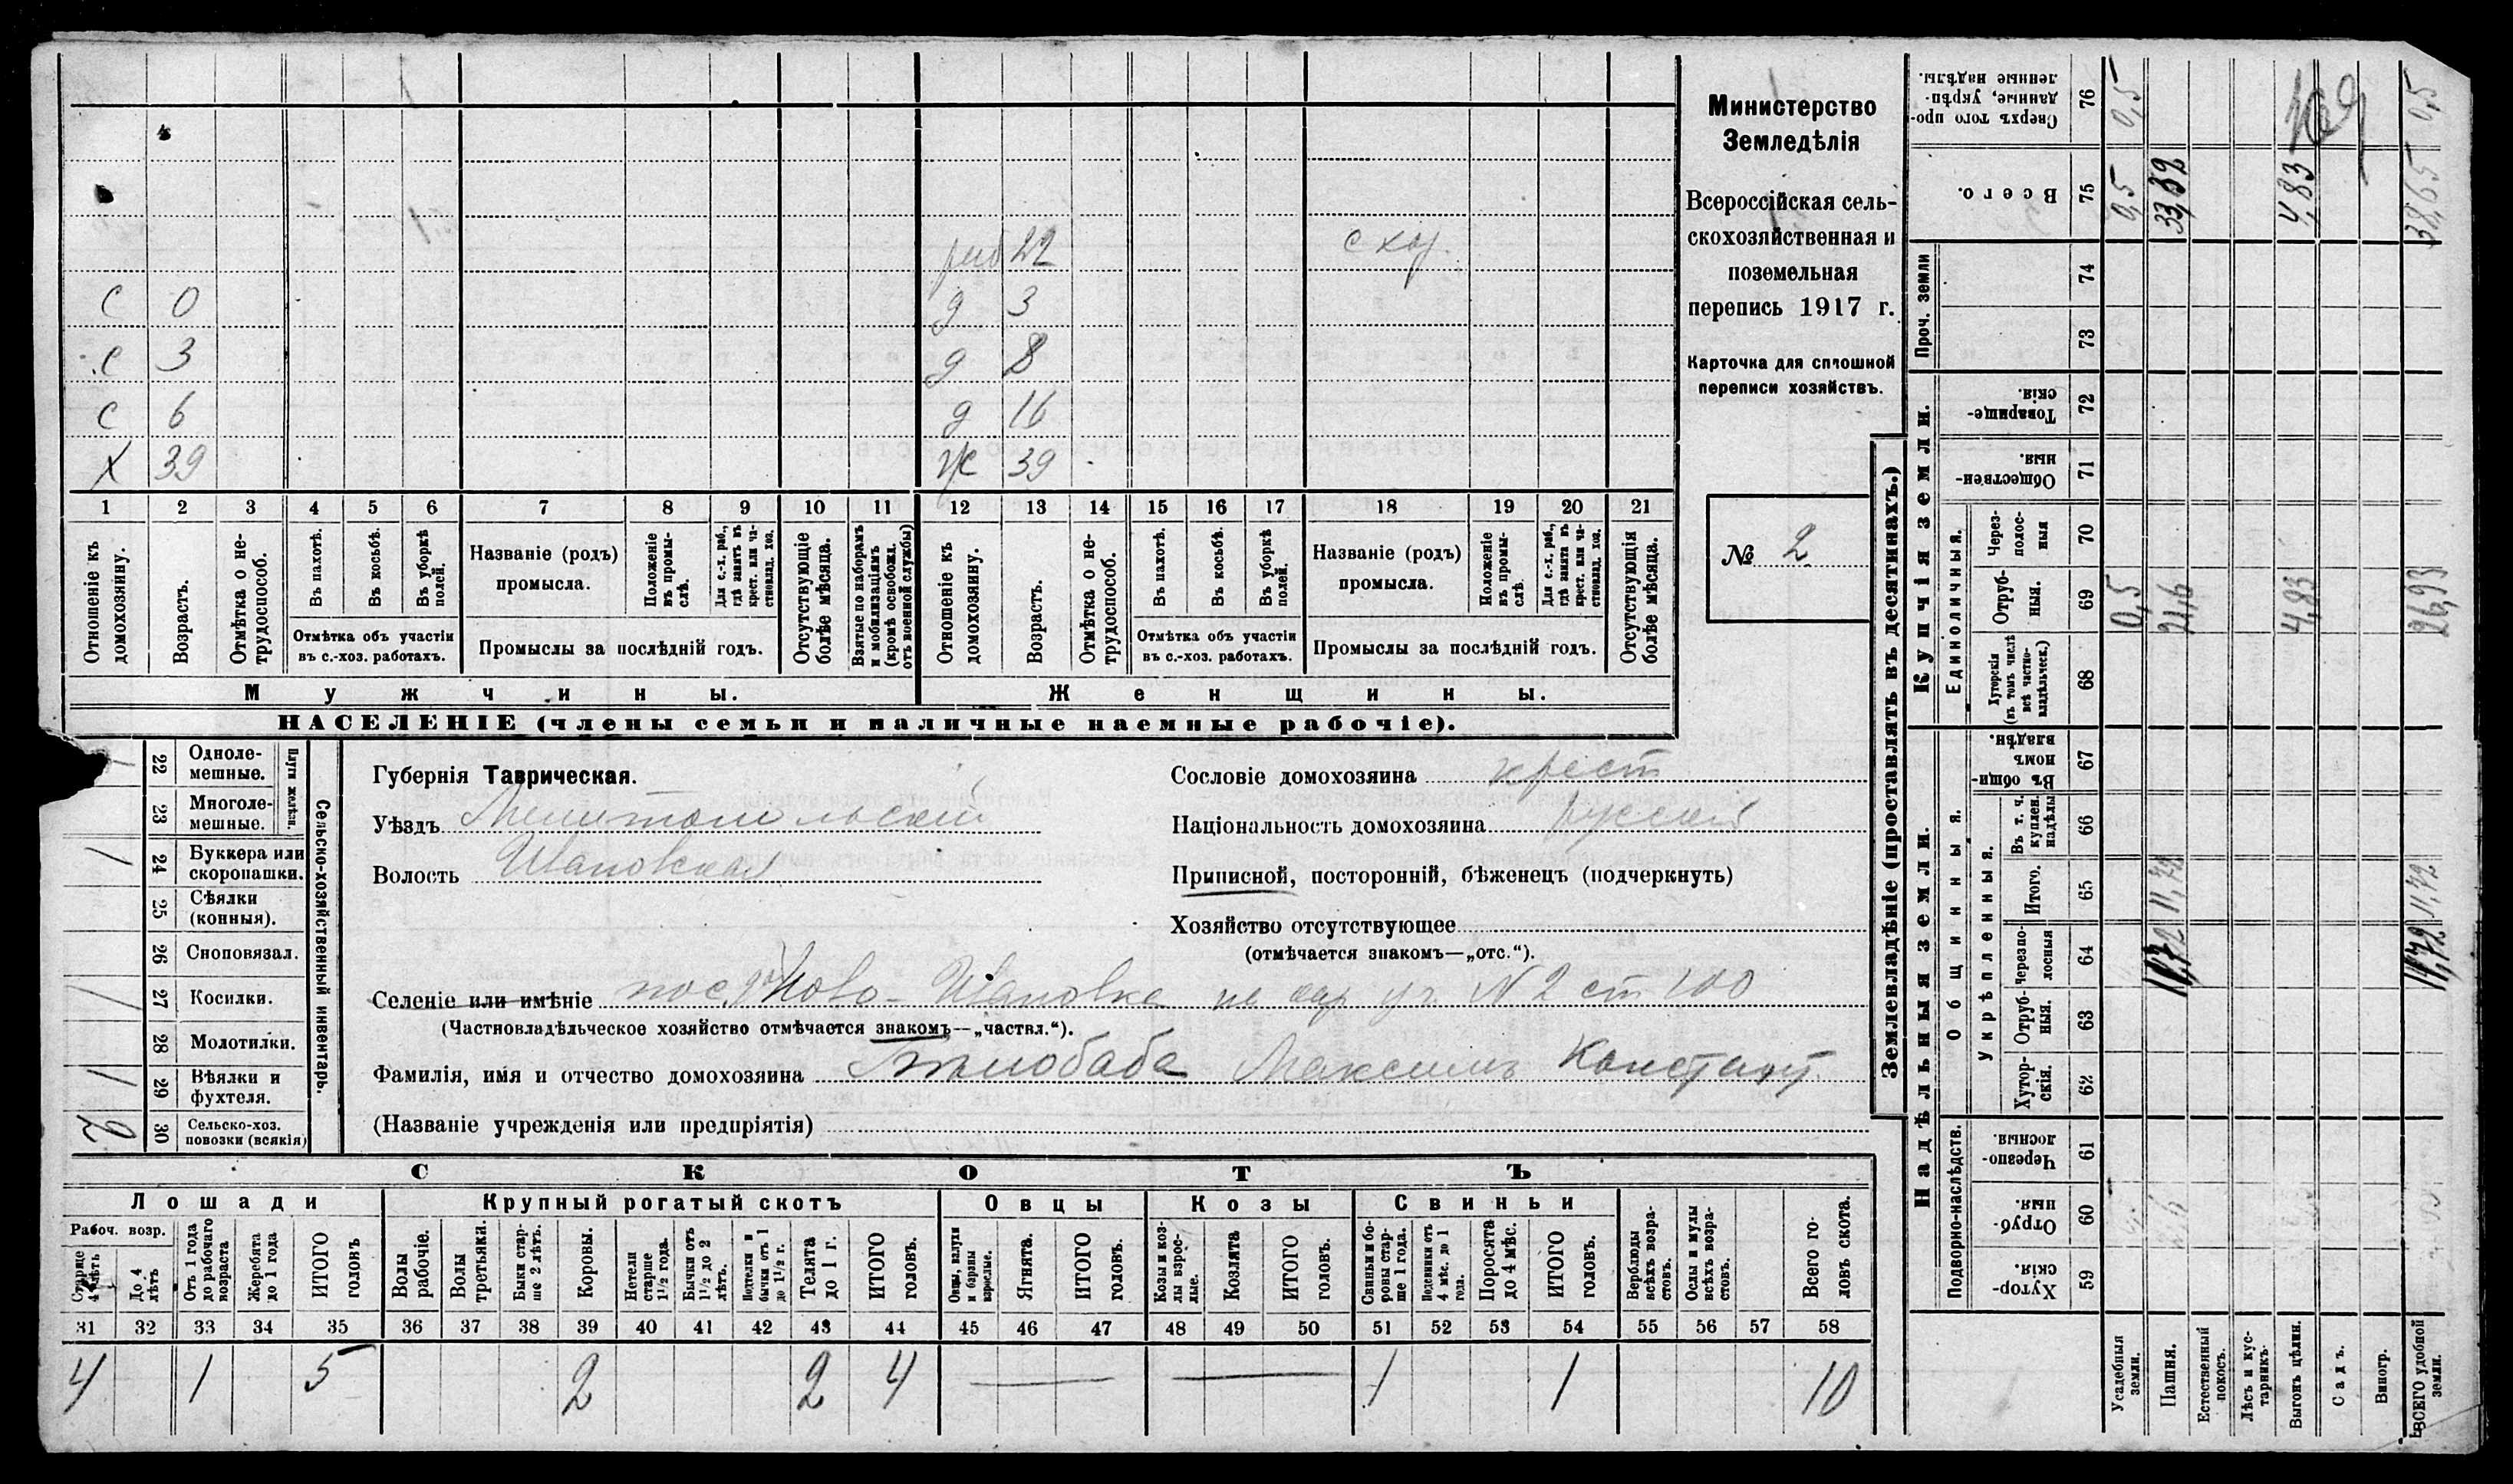 раб 22 с хоз.
С 0 д 3
С 3 д 8
С 6 д 16
Х 39 ж 39
1 2 3 4 5 6 7 8 9 10 11 12 13 14 15 16 17 18 19 20 21
Отношеніе къ домохозяину.
Возрастъ.
Отмѣтка о нетрудоспособ.
Въ пахотѣ.
Въ косьбѣ.
Въ уборкѣ полей.
Отмѣтка объ участіи въ с.-хоз. работахъ.
Названіе (родъ) промысла.
Положеніе въ промыслѣ.
Для с.-х. раб., гдѣ занятъ въ крест. или частновлад. хоз.
Промыслы за послѣдній годъ.
Отсутствующіе болѣе мѣсяца.
Взятые по наборамъ и мобилизаціямъ (кромѣ освобожд. отъ военной службы)
Отношеніе къ домохозяину.
Возрастъ.
Отмѣтка о нетрудоспособ.
Въ пахотѣ.
Въ косьбѣ.
Въ уборкѣ полей.
Отмѣтка объ участіи въ с.-хоз. работахъ.
Названіе (родъ) промысла.
Положеніе въ промыслѣ.
Для с.-х. раб., гдѣ занята въ крест. или частновлад. хоз.
Промыслы за послѣдній годъ.
Отсутствующія болѣе мѣсяца.
Мужчины. Женщины.
НАСЕЛЕНІЕ (члены семьи и наличные наемные рабочіе).
Министерство
Земледѣлія
Всероссійская сель-
скохозяйственная и
поземельная
перепись 1917 г.
Карточка для сплошной
переписи хозяйствъ.
№ 2
Сельско-хозяйственный инвентарь.
Плуги желѣзн.
22 Одноле-мешные.
23 Многоле-мешные.
1 24 Буккера или скоропашки.
25 Сѣялки (конныя).
26 Сноповязал.
1 27 Косилки.
28 Молотилки.
1 29 Вѣялки и фухтеля.
2 30 Сельско-хоз. повозки (всякія)
Губернія Таврическая.
Уѣздъ Мелитопольскій
Волость Ивановская
Сословіе домохозяина крест
Національность домохозяина русскій
Приписной, посторонній, бѣженецъ (подчеркнуть)
Хозяйство отсутствующее
(отмѣчается знакомъ—„отс.“).
Селеніе или имѣніе Ново-Ивановка уч. N 2 ст 100
(Частновладѣльческое хозяйство отмѣчается знакомъ—„частвл.“).
Фамилія, имя и отчество домохозяина Бѣлобаба Максимъ Констант.
(Названіе учрежденія или предпріятія)
СКОТЪ
Лошади Крупный рогатый скотъ Овцы Козы Свиньи
Рабоч. возр.
Старше 4 лѣтъ
До 4 лѣтъ
Отъ 1 года до рабочаго возраста
Жеребята до 1 года
ИТОГО головъ
Волы рабочіе.
Волы третьяки.
Быки старше 2 лѣтъ.
Коровы.
Нетели старше 1½ года.
Бычки отъ 1½ до 2 лѣтъ.
Подтелки и бычки отъ 1 до 1½ г.
Телята до 1 г.
ИТОГО головъ.
Овцы, валухи и бараны взрослые.
Ягнята.
ИТОГО головъ.
Козы и козлы взрослые.
Козлята
ИТОГО головъ.
Свиньи и боровы старше 1 года.
Подсвинки отъ 4 мѣс. до 1 года.
Поросята до 4 мѣс.
ИТОГО головъ.
Верблюды всѣхъ возрастовъ.
Ослы и мулы всѣхъ возрастовъ.
Всего головъ скота.
31 32 33 34 35 36 37 38 39 40 41 42 43 44 45 46 47 48 49 50 51 52 53 54 55 56 57 58
4 1 5 2 2 4 — — 1 1 10
Землевладѣніе (проставлять въ десятинахъ.)
Надѣльныя земли. Купчія земли.
Подворно-наслѣдств.
Общинныя.
Укрѣпленныя.
Единоличныя.
Проч. земли
59 Хуторскія.
60 Отрубныя.
61 Черезполосныя.
62 Хуторскія.
63 Отрубныя.
64 Черезполосныя
65 Итого.
66 Въ т. ч. куплен. надѣлы
67 Въ общинномъ владѣн.
68 Хуторскія (въ томъ числѣ всѣ частновладѣльческ.)
69 Отрубныя.
70 Черезполосныя
71 Общественныя.
72 Товарищескія.
73
74
75 Всего.
76 Сверхъ того проданные, укрѣпленные надѣлы.
Усадебныя земли. 0,5 0,5 0,5
Пашня. 11,72 11,72 21,6 33,32
Естественный покосъ.
Лѣсъ и кустарникъ.
Выгонъ цѣлин. 4,83 4,83
Садъ.
Виногр.
ВСЕГО удобной земли. 11,72 11,72 26,93 38,65 0,5